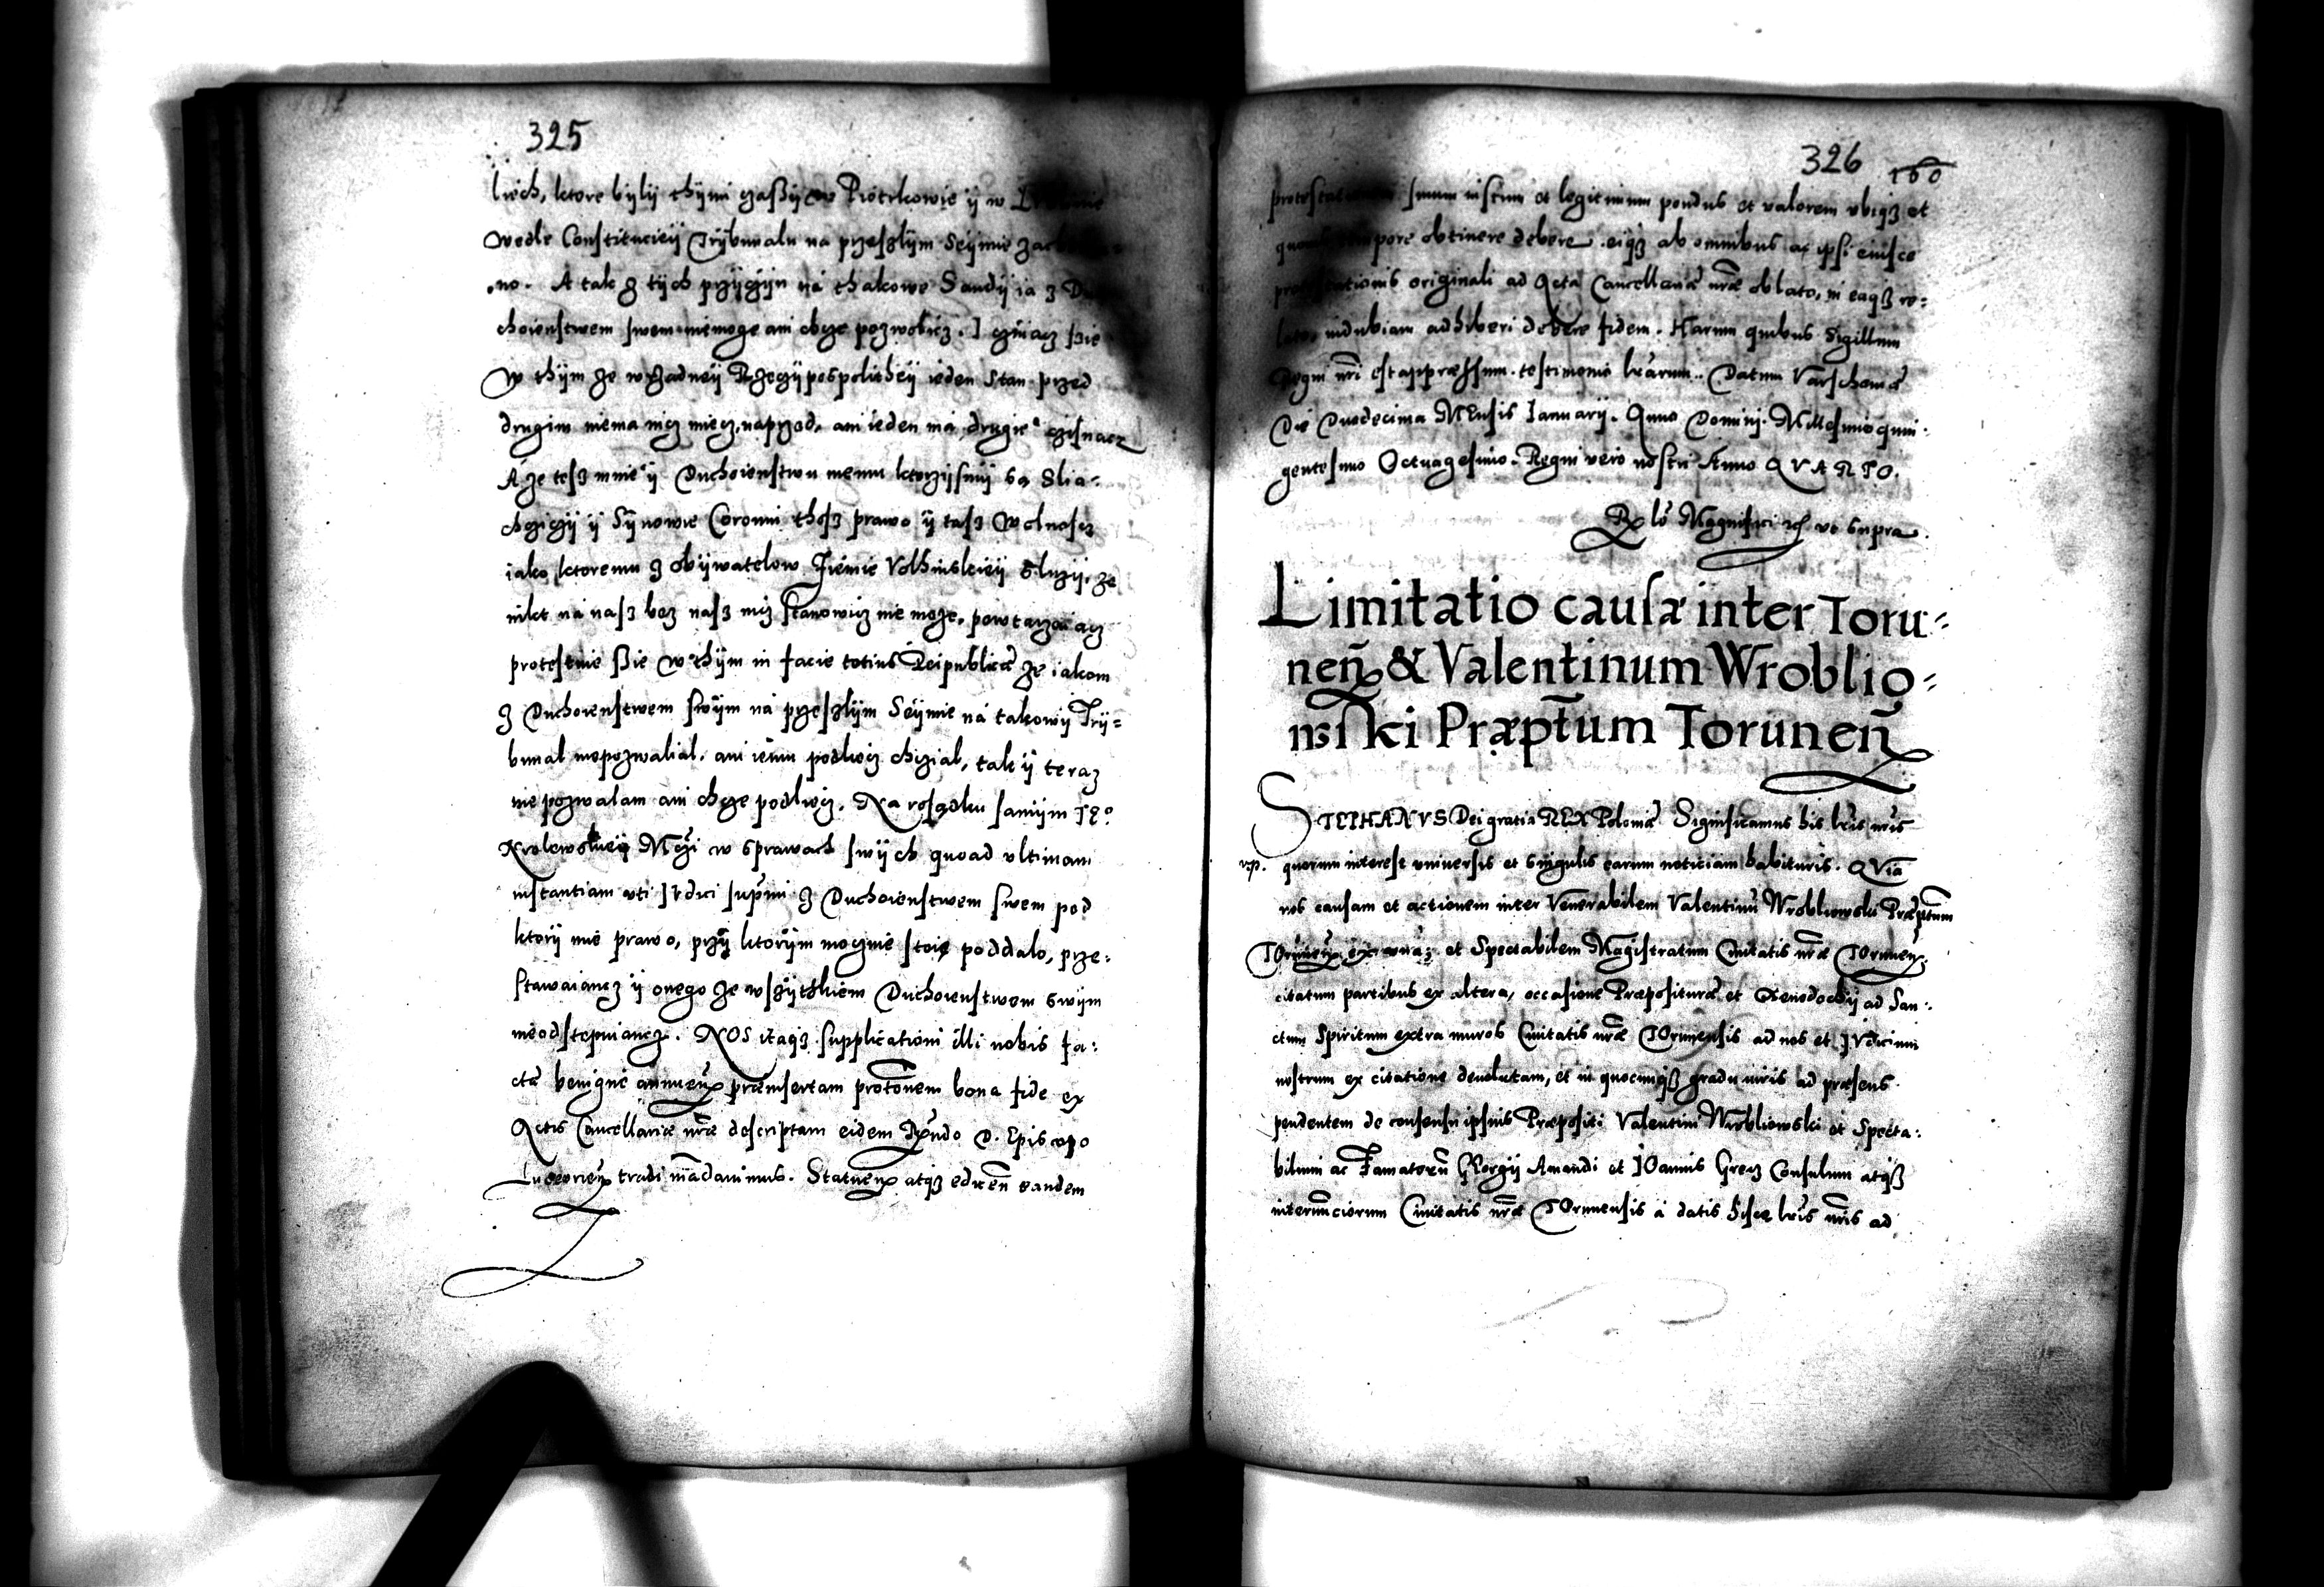 325
liech, ktore byly thymi czassy w Piotrkowie y w
wedle Constitucieÿ Trybunalu na przeszlym Seymie
no. A tak z tych przyczyn na thakowe Sandy ia z
choienstwem swem niemoge ani chcze pozwolicz. I czniacz sie
W thym ze w zadney Rzeczypospolithey ieden Stan przed
drugim niema nicz miecz naprzod, ani ieden na drugie° czisnacz
A ze tesz mnie y Duchoienstwu memu ktorzysmy sa Slia-
chczyczy y Synowie Coronni thosz prawo y tasz Wolnoscz
iako ktoremu z obywatelow Ziemie Volhinskiey Sluzy, ze
nikt na nasz bez nasz nicz stanowicz nie moze, powtarzaiacz
protestuie sie w thym in facie totius Reipublicæ ze iakom
z Duchoienstwem swym na przeszlym Seymie na takowy Try-
bunal niepozwalial, ani iemu podlecz chczial, tak y teraz
nie pozwalam ani chcze podlecz. Na roszdku samym Je°
Krolewskiey Mczi w sprawach swych quoad vltimam
instantiam uti Iudici supmi z Duchoienstwem swem pod
ktory mie prawo, przy ktorym mocznie stoie poddalo, prze-
stawaiancz y onego ze wszytkiem Duchoienstwem swym
nieodstepuiancz. NOS itaqz supplicationi illi nobis fa-
ctæ benigne annuen præinsertam protonem bona fide ex
Actis Cancellariæ nræ descriptam eidem Rndo D. Episcopo
Luceorien tradi madauimus. Statuen atqz edicen eandem
326 160
suum iustum et legitimum pondus et valorem vbiqz et
tempore obtinere debere. eiqz ab omnibus ac ipsi eiusce
originali ad Acta Cancellariæ nræ oblato, in eaqz re-
indubiam adhiberi debere fidem. Harum quibus Sigillum
Regni nri est appræssum testimonio lrarum. Datum Varschouiæ
Die Duodecima MEnsis Ianuarij. Anno Domini. Millesimo quin-
gentesimo Octuagesimo. Regni vero nostri Anno QVARTO.
Rlo Magnifici rc ut supra
Limitatio causæ inter Toru-
neñ & Valentinum Wroblio-
wski Præptum Toruneñ
STEPHANVS Dei gratia REX Poloniæ Significamus his lris nris
quorum interest vniuersis et singulis earum noticiam habituris. QVia
nos causam et actionem inter Venerabilem Valentinu Wrobliowski Præptum
Torunen ex vna; et Spectabilem Magistratum Ciuitatis nræ TOrunen.
citatum partibus ex altera, occasione Præpositura et Xenodochij ad San-
ctum Spiritum extra muros Ciuitatis nræ TOrunensis ad nos et IVdicium
nostrum ex citatione deuolutam, et in quocunqz gradu iuris ad præsens
pendentem de consensu ipsius Præpositi Valentini Wrobliowski et Specta-
bilium ac Famatoru GEorgij Amandi et IOannis Grez Consulum atqz
internunciorum Ciuitatis nræ TOrunensis a datis hisce lris nris ad